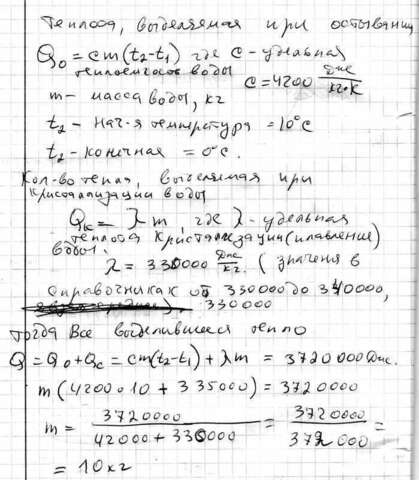 Теплота, выделяемая при остывании
Q₀ = cm(t₂-t₁) где c - удельная
теплоемкость воды c = 4200 Дж/кг·К
m - масса воды, кг
t₂ - нач-я температура = 10°C
t₂ - конечная = 0°C.
Кол-во тепла, выделяемая при
кристаллизации воды
Qк = λ m, где λ - удельная
теплота кристализации (плавление)
воды.
λ = 330000 Дж/кг. (значения в
справочниках от 330000 до 340000,
330000
тогда Все выделившееся тепло
Q = Q₀ + Qc = cm(t₂-t₁) + λm = 3720000 Дж.
m(4200·10 + 335000) = 3720000
m = 3720000 / 42000 + 330000 = 3720000 / 372000 =
= 10 кг